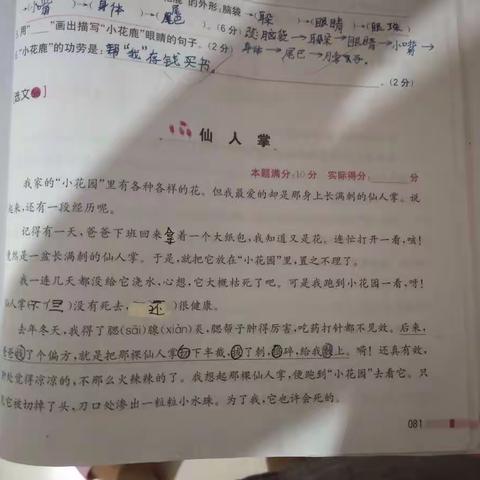 的外形:脑袋→(朵)→(眼睛)→(眼珠)
→(小嘴)→(身体)→(尾)。(6分)
"画出描写"小花鹿"眼睛的句子。(2分) 脑袋→耳朵→眼睛→小嘴→
身体→尾巴→
"小花鹿"的功劳是:帮"我"存钱买书。(2分)
选文
仙人掌
本题满分:10分 实际得分:分
我家的"小花园"里有各种各样的花。但我最爱的却是那身上长满刺的仙人掌。说
起来,还有一段经历呢。
记得有一天,爸爸下班回来拿着一个大纸包,我知道又是花。连忙打开一看,咳!
竟然是一盆长满刺的仙人掌。于是,就把它放在"小花园"里,置之不理了。
我一连几天都没给它浇水,心想,它大概枯死了吧。可是我跑到小花园一看,呀!
仙人掌(不但)没有死去,(还)很健康。
去年冬天,我得了腮(sāi)腺(xiàn)炎,腮帮子肿得厉害,吃药打针都不见效。后来,
爸爸找了个偏方,就是把那棵仙人掌下半截,了刺,碎,给我上。嗬!还真有效,
肿处觉得凉凉的,不那么火辣辣的了。我想起那棵仙人掌,便跑到"小花园"去看它。只
见它被切掉了头,刀口处渗出一粒粒小水珠。为了我,它也许会死的。
081